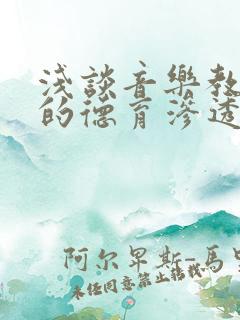 浅談音樂教
的德育滲透
阿尔卑斯-馬
未经同意禁止转载